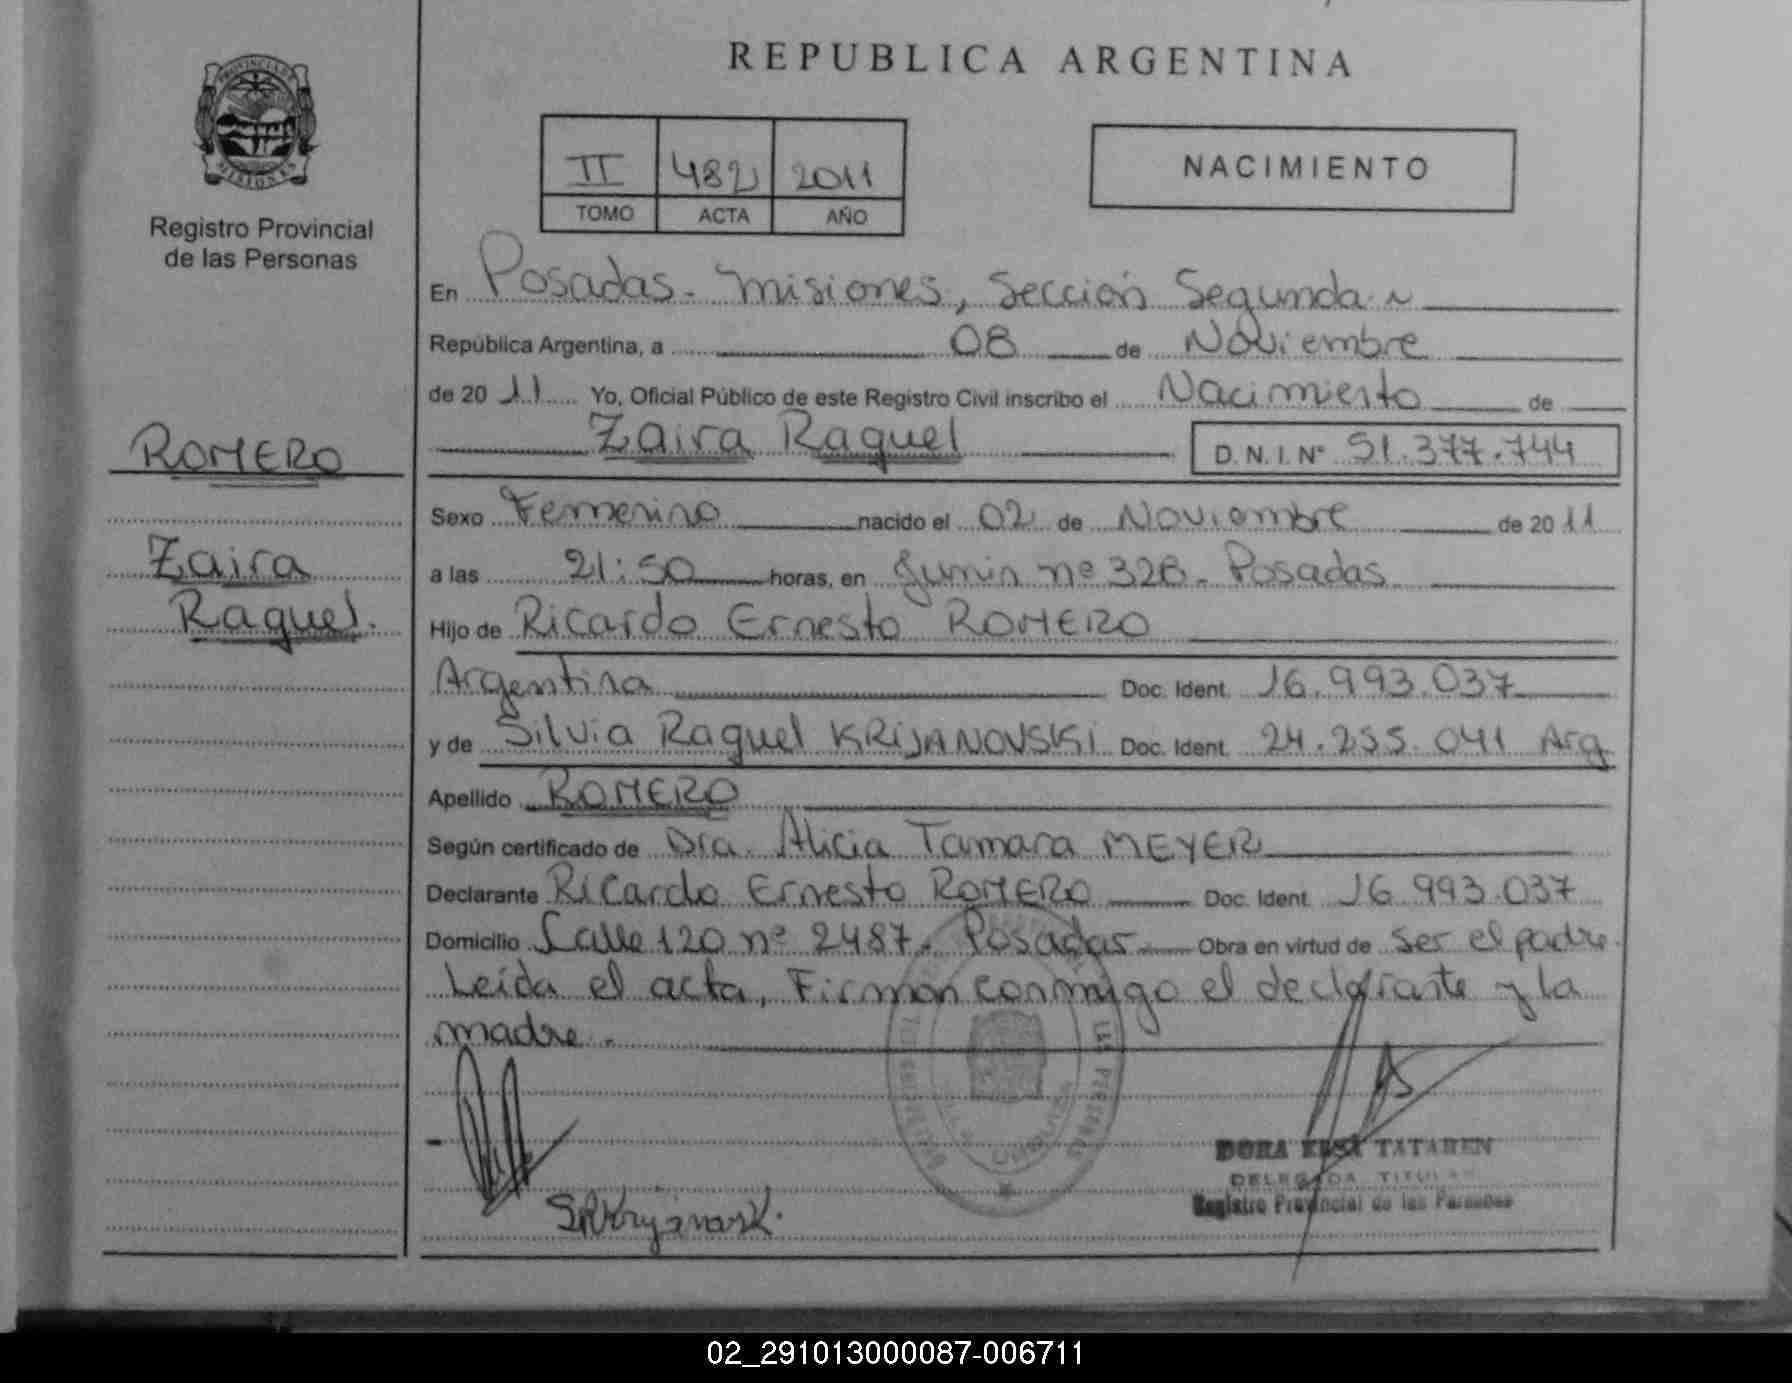 REPUBLICA ARGENTINA
PROVINCIA DE
MISIONES
Registro Provincial
de las Personas
II 482 2011
TOMO ACTA AÑO
NACIMIENTO
En Posadas - Misiones, Sección Segunda
República Argentina, a 08 de Noviembre
de 2011 Yo, Oficial Público de este Registro Civil inscribo el Nacimiento de
Zaira Raquel D.N.I. Nº 51.377.744
ROMERO
Zaira
Raquel.
Sexo Femenino nacido el 02 de Noviembre de 2011
a las 21:50 horas, en Junin nº 328 - Posadas
Hijo de Ricardo Ernesto ROMERO
Argentina Doc. Ident. 16.993.037
y de Silvia Raquel KRIJANOVSKI Doc. Ident. 24.255.041 Arg
Apellido ROMERO
Según certificado de Dra. Alicia Tamara MEYER
Declarante Ricardo Ernesto ROMERO Doc. Ident. 16.993.037
Domicilio Calle 120 nº 2487. Posadas Obra en virtud de ser el padre.
Leída el acta, Firman conmigo el declarante y la
madre.
DORA TATAREN
DELEGADA TITULAR
Registro Provincial de las Personas
02_291013000087-006711